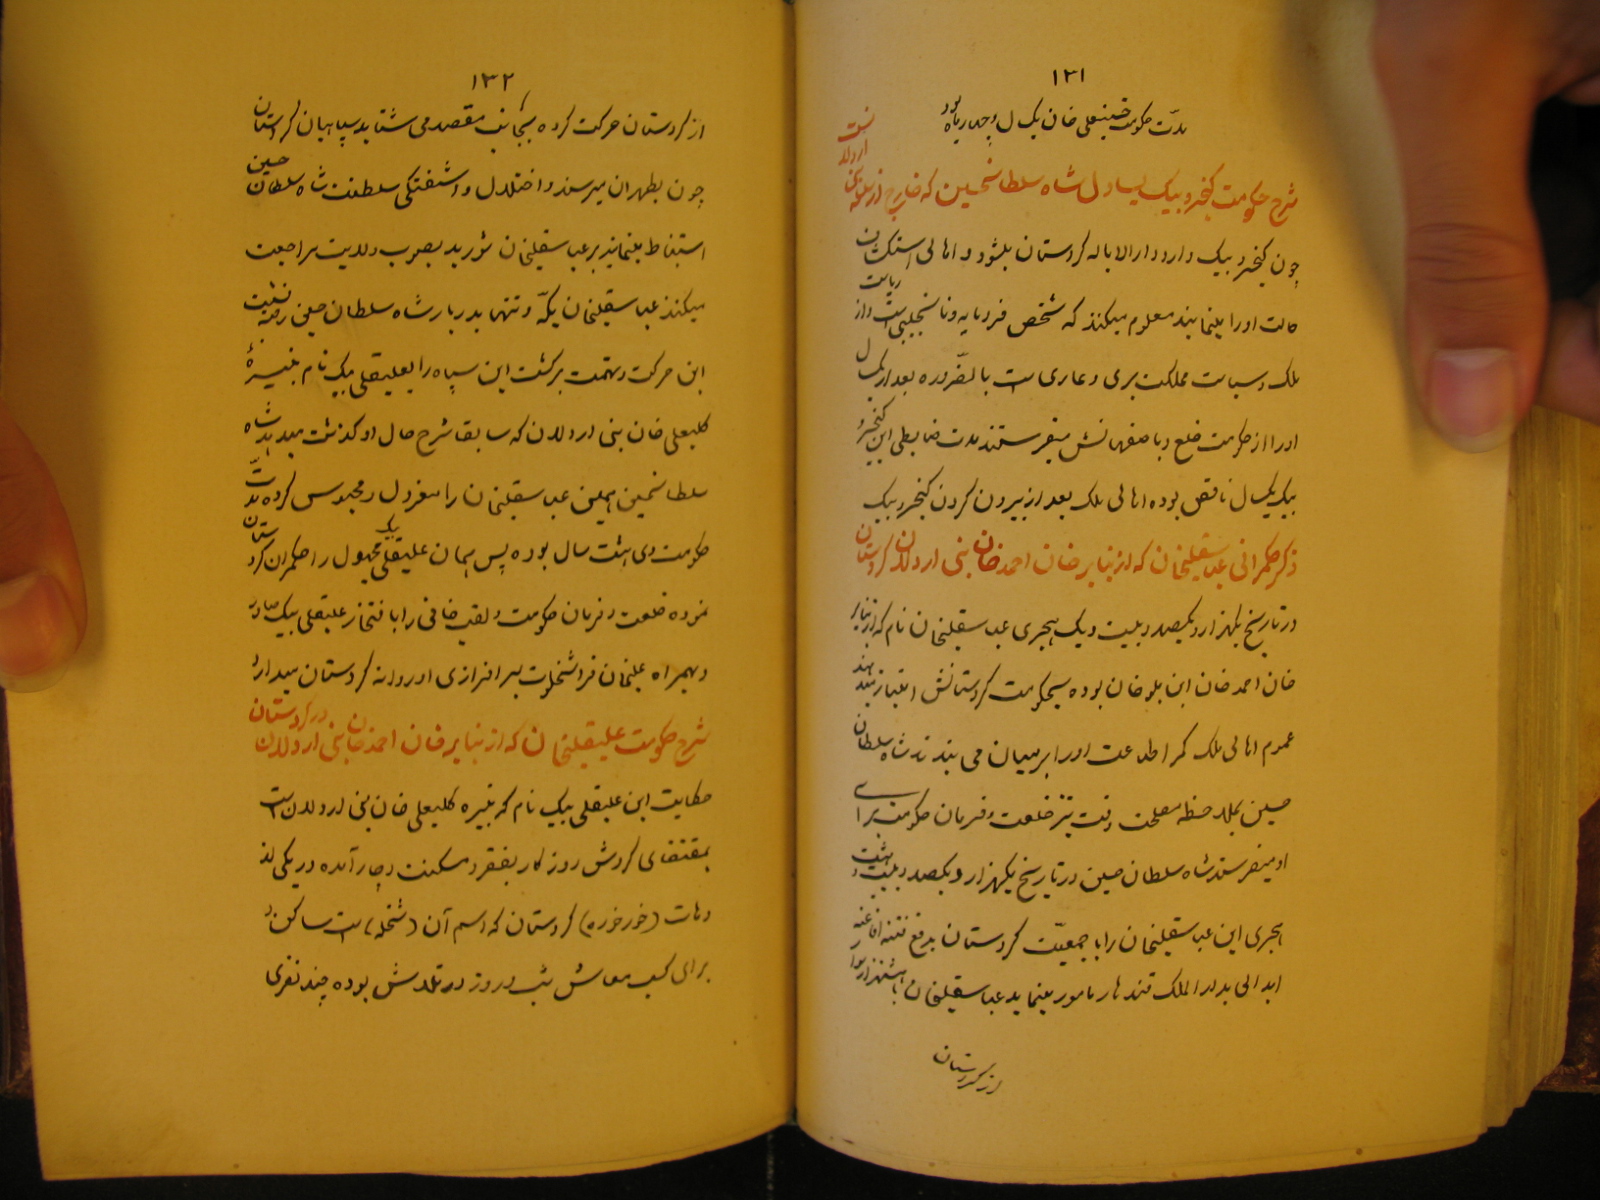 ١٣١
مدّت حکومت حسینعلی خان یک سال و چهار ماه بود
شرح حکومت کیخسرو بیک یساول شاه سلطانحسین که خارج از سلسله بنی اردلان است
چون کیخسرو بیک وارد دارالایاله کردستان میشود و اهالی استکشاف
حالت او را مینمایند معلوم میکنند که شخص فرومایه و نانجیبی است و از ریاست
ملک و سیاست مملکت بری و عاری است بالضّروره بعد از یکسال
او را از حکومت خلع و باصفهانش میفرستند مدت ضابطی این کیخسرو
بیک یکسال ناقص بوده اهالی ملک بعد از بیرون کردن کیخسرو بیک
ذکر حکمرانی عباسقلیخان که از نبایر خان احمد خان بنی اردلان کردستان
در تاریخ یکهزار و یکصد و بیست و یک هجری عباسقلیخان نام که از نبایر
خان احمد خان ابن هلوخان بوده بحکومت کردستانش امتیاز میدهند
عموم اهالی ملک کمر اطاعت او را بر میان می بندند شاه سلطان
حسین بملاحظه مصلحت وقت نیز خلعت و فرمان حکومت برای
او میفرستد شاه سلطان حسین در تاریخ یکهزار و یکصد و بیست و هشت
هجری این عباسقلیخان را با جمعیّت کردستان بدفع فتنه افاغنه
ابدالی بدارالملک قندهار مامور مینماید عباسقلیخان با هشتهزار سوار
از کردستان
١٣٢
از کردستان حرکت کرده بجانب مقصد می شتابد سپاهیان کردستان
چون بطهران میرسند و اختلال و آشفتگی سلطنت شاه سلطان حسین
استنباط مینمایند بر عباسقلیخان شوریده بصوب ولایت مراجعت
میکنند عباسقلیخان یکّه و تنها بدربار شاه سلطان حسین رفته نسبت
این حرکت و تهمت برگشت این سپاه را بعلیقلی بیک نام نبیرهٔ
کلبعلی خان بنی اردلان که سابقا شرح حال او گذشت میدهد شاه
سلطانحسین همین عباسقلیخان را معزول و محبوس کرده مدّت
حکومت وی هشت سال بوده پس همان علیقلی بیک مجهول را حکمران کردستان
نموده خلعت و فرمان حکومت و لقب خانی را بافتخار علیقلی بیک صادر
و بهمراه علیخان فراشخلوت بسرافرازی او روانه کردستان میدارد
شرح حکومت علیقلیخان که از نبایر خان احمد خان بنی اردلان در کردستان
حکایت این علیقلی بیک نام که نبیره کلبعلی خان بنی اردلان است
بمقتضای گردش روزگار بفقر و مسکنت دچار آمده در یکی از
دهات (خورخوره) کردستان که اسم آن است ساکن و
برای کسب معاش شب و روز در تلاش بوده چند نفری